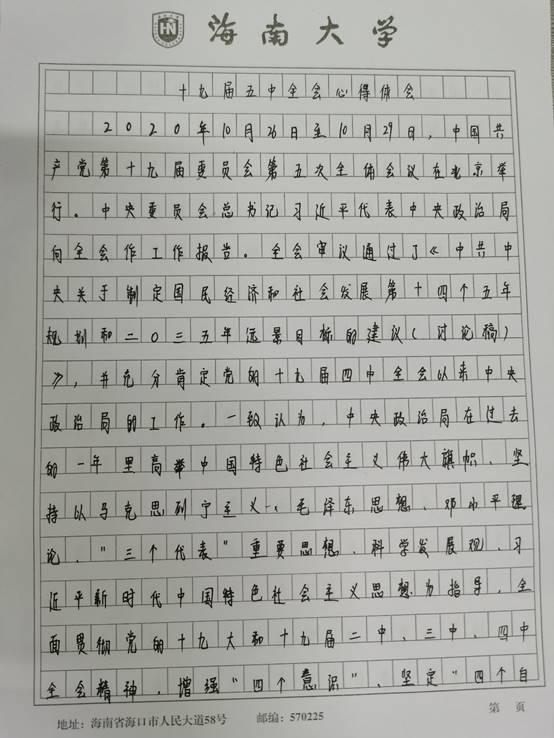 海南大学
十九届五中全会心得体会
2020年10月26日至10月29日，中国共
产党第十九届委员会第五次全体会议在北京举
行。中央委员会总书记习近平代表中央政治局
向全会作工作报告。全会审议通过了《中共中
央关于制定国民经济和社会发展第十四个五年
规划和二〇三五年远景目标的建议（讨论稿）
》，并充分肯定党的十九届四中全会以来中央
政治局的工作。一致认为，中央政治局在过去
的一年里高举中国特色社会主义伟大旗帜、坚
持以马克思列宁主义、毛泽东思想、邓小平理
论、“三个代表”重要思想、科学发展观、习
近平新时代中国特色社会主义思想为指导，全
面贯彻党的十九大和十九届二中、三中、四中
全会精神，增强“四个意识”、坚定“四个自
第 页
地址：海南省海口市人民大道58号 邮编：570225